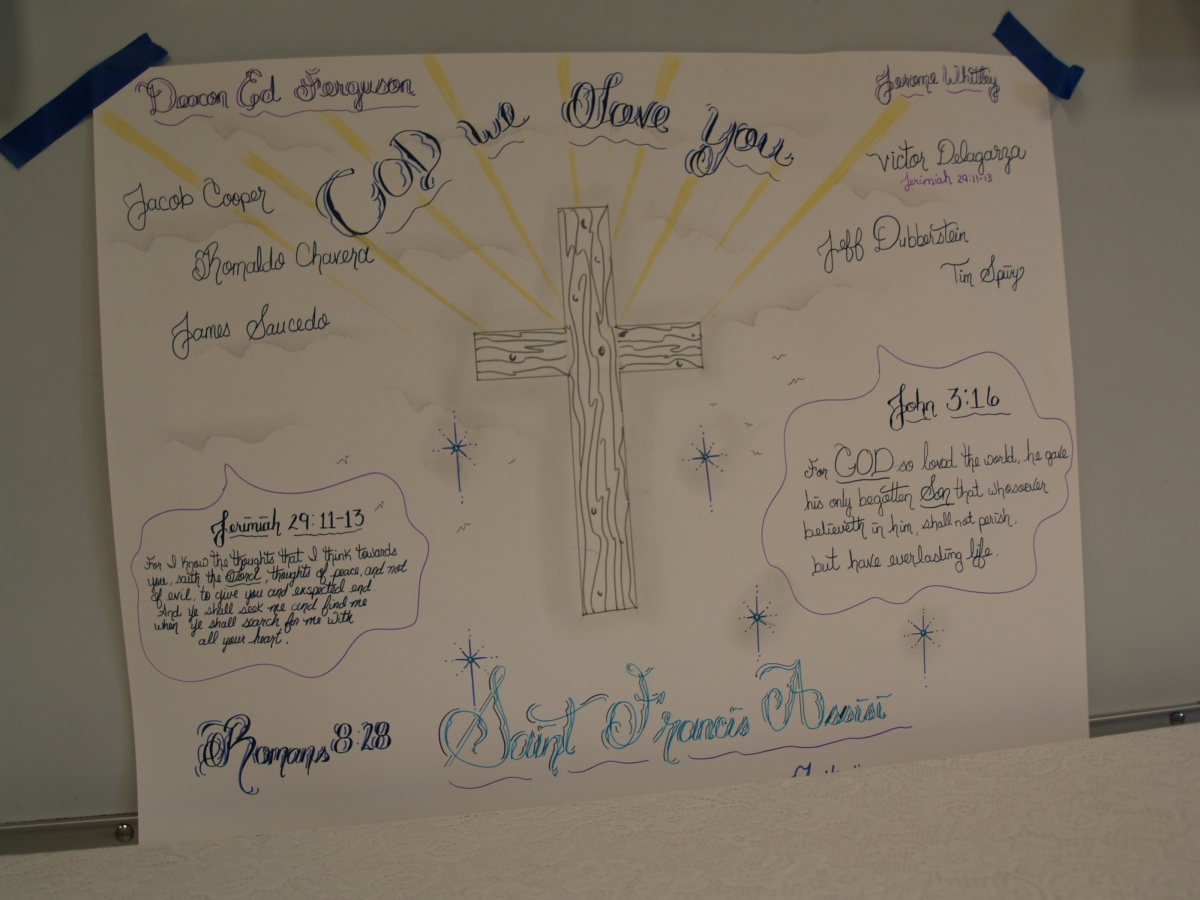 Deacon Ed Ferguson
GOD we Love You
Jerome Whittey
Jacob Cooper
Victor Delagarza
Jerimiah 29:11-13
Romaldo Chavera
Jeff Dubberstein
Tim Spivy
James Saucedo
John 3:16
For GOD so loved the world, he gave
his only begotten Son that whosoever
believeth in him, shall not perish.
but have everlasting life.
Jerimiah 29:11-13
For I know the thoughts that I think towards
you, saith the Lord, thoughts of peace, and not
of evil, to give you and exspected end.
And ye shall seek me and find me
when ye shall search for me with
all your heart.
Romans 8:28
Saint Francis Assisi